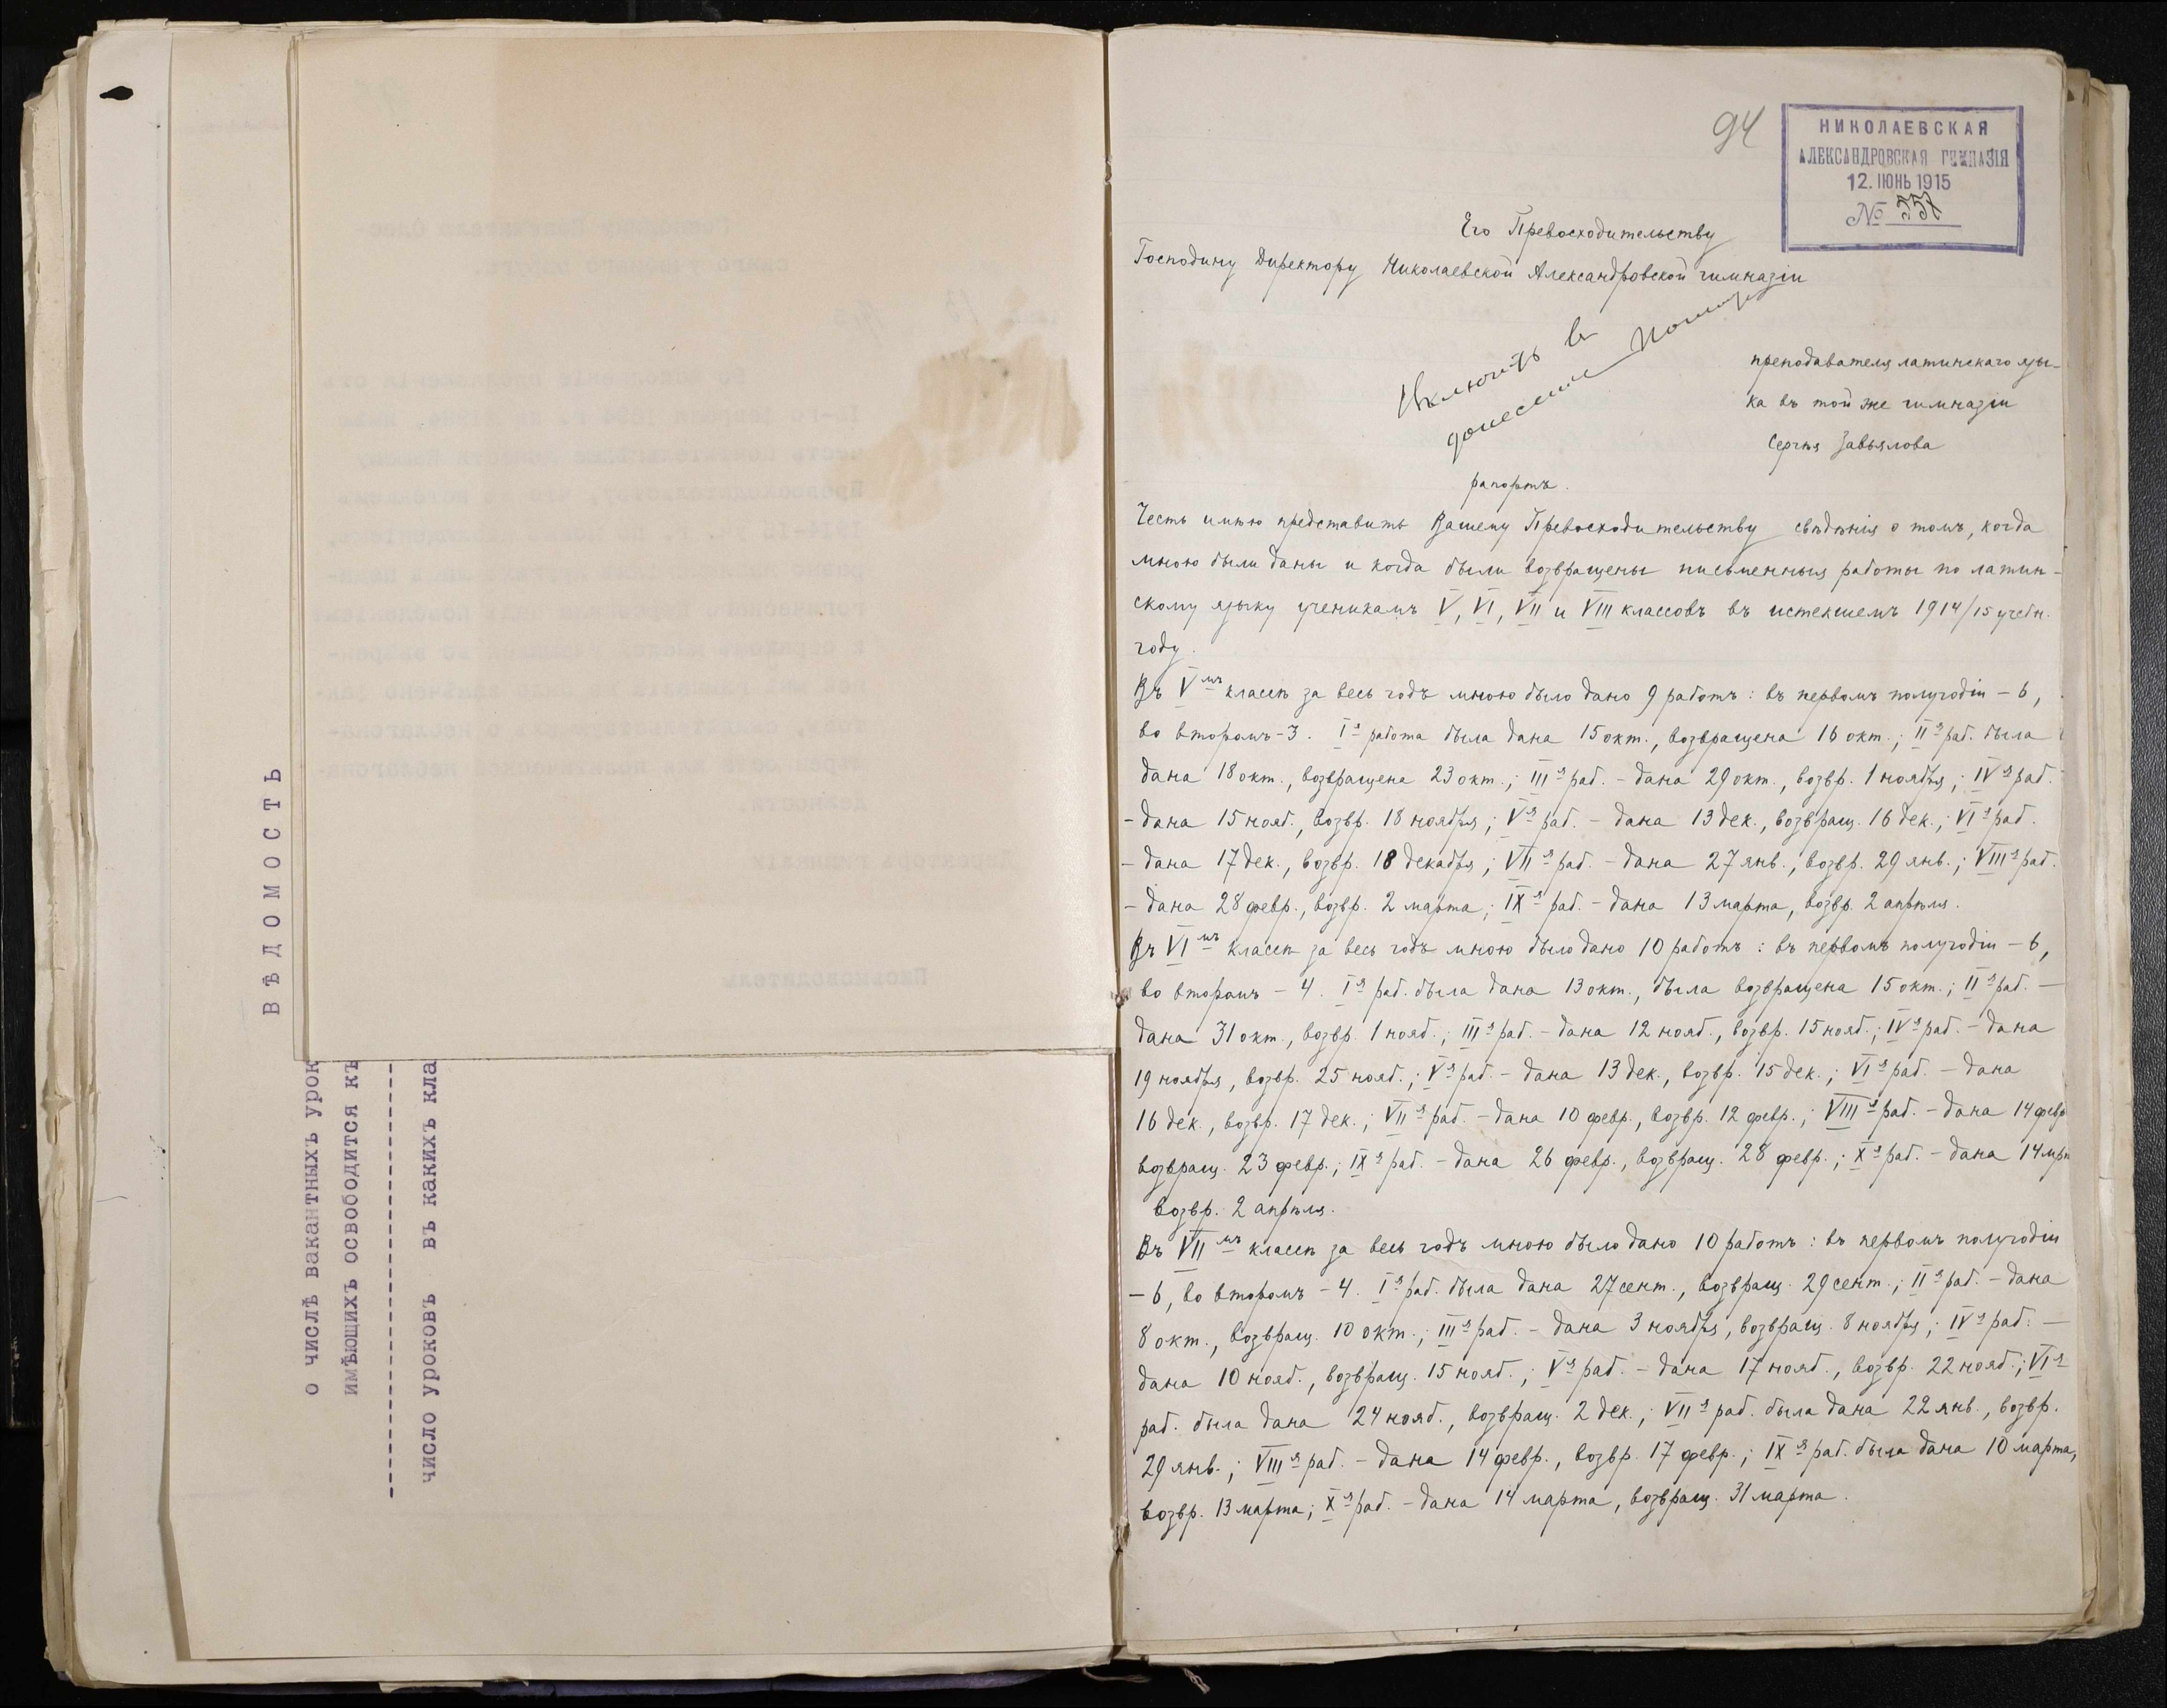 ВѢДОМОСТЬ
о числѣ вакантныхъ урок
имѣющихъ освободится къ
число уроковъ въ какихъ кла
94
НИКОЛАЕВСКАЯ
АЛЕКСАНДРОВСКАЯ ГИМНАЗІЯ
12. ІЮНЬ 1915
№ 557
Его Превосходительству
Господину Директору Николаевской Александровской гимназіи
Включить в
донесение
преподавателя латинскаго язы-
ка въ той же гимназіи
Сергѣя Завьялова
рапортъ.
Честь имѣю представить Вашему Превосходительству свѣдѣнія о томъ, когда
мною были даны и когда были возвращены письменныя работы по латин-
скому языку ученикамъ V, VI, VII и VIII классовъ въ истекшемъ 1914/15 учебн.
году.
Въ V мъ классѣ за весь годъ мною было дано 9 работъ: въ первомъ полугодіи – 6,
во второмъ – 3. I я работа была дана 15 окт., возвращена 16 окт.; II я раб. была
дана 18 окт., возвращена 23 окт.; III я раб. – дана 29 окт., возвр. 1 ноября; IV я раб.
– дана 15 нояб., возвр. 18 ноября; V я раб. – дана 13 дек., возвращ. 16 дек.; VI я раб.
– дана 17 дек., возвр. 18 декабря; VII я раб. – дана 27 янв., возвр. 29 янв.; VIII я раб.
– дана 28 февр., возвр. 2 марта; IX я раб. – дана 13 марта, возвр. 2 апрѣля.
Въ VI мъ классѣ за весь годъ мною было дано 10 работъ: въ первомъ полугодіи – 6,
во второмъ – 4. I я раб. была дана 13 окт., была возвращена 15 окт.; II я раб. –
дана 31 окт., возвр. 1 нояб.; III я раб. – дана 12 нояб., возвр. 15 нояб.; IV я раб. – дана
19 ноября, возвр. 25 нояб.; V я раб. – дана 13 дек., возвр. 15 дек.; VI я раб. – дана
16 дек., возвр. 17 дек.; VII я раб. – дана 10 февр., возвр. 12 февр.; VIII я раб. – дана 14 февр
возвращ. 23 февр.; IX я раб. – дана 26 февр., возвращ. 28 февр.; X я раб. – дана 14 мрт
возвр. 2 апрѣля.
Въ VII мъ классѣ за весь годъ мною было дано 10 работъ: въ первомъ полугодіи
– 6, во второмъ – 4. I я раб. была дана 27 сент., возвращ. 29 сент.; II я раб. – дана
8 окт., возвращ. 10 окт.; III я раб. – дана 3 ноября, возвращ. 8 ноября; IV я раб. –
дана 10 нояб., возвращ. 15 нояб.; V я раб. – дана 17 нояб., возвр. 22 нояб.; VI я
раб. была дана 24 нояб., возвращ. 2 дек.; VII я раб. была дана 22 янв., возвр.
29 янв.; VIII я раб. – дана 14 февр., возвр. 17 февр.; IX я раб. была дана 10 марта,
возвр. 13 марта; X я раб. – дана 14 марта, возвращ. 31 марта.